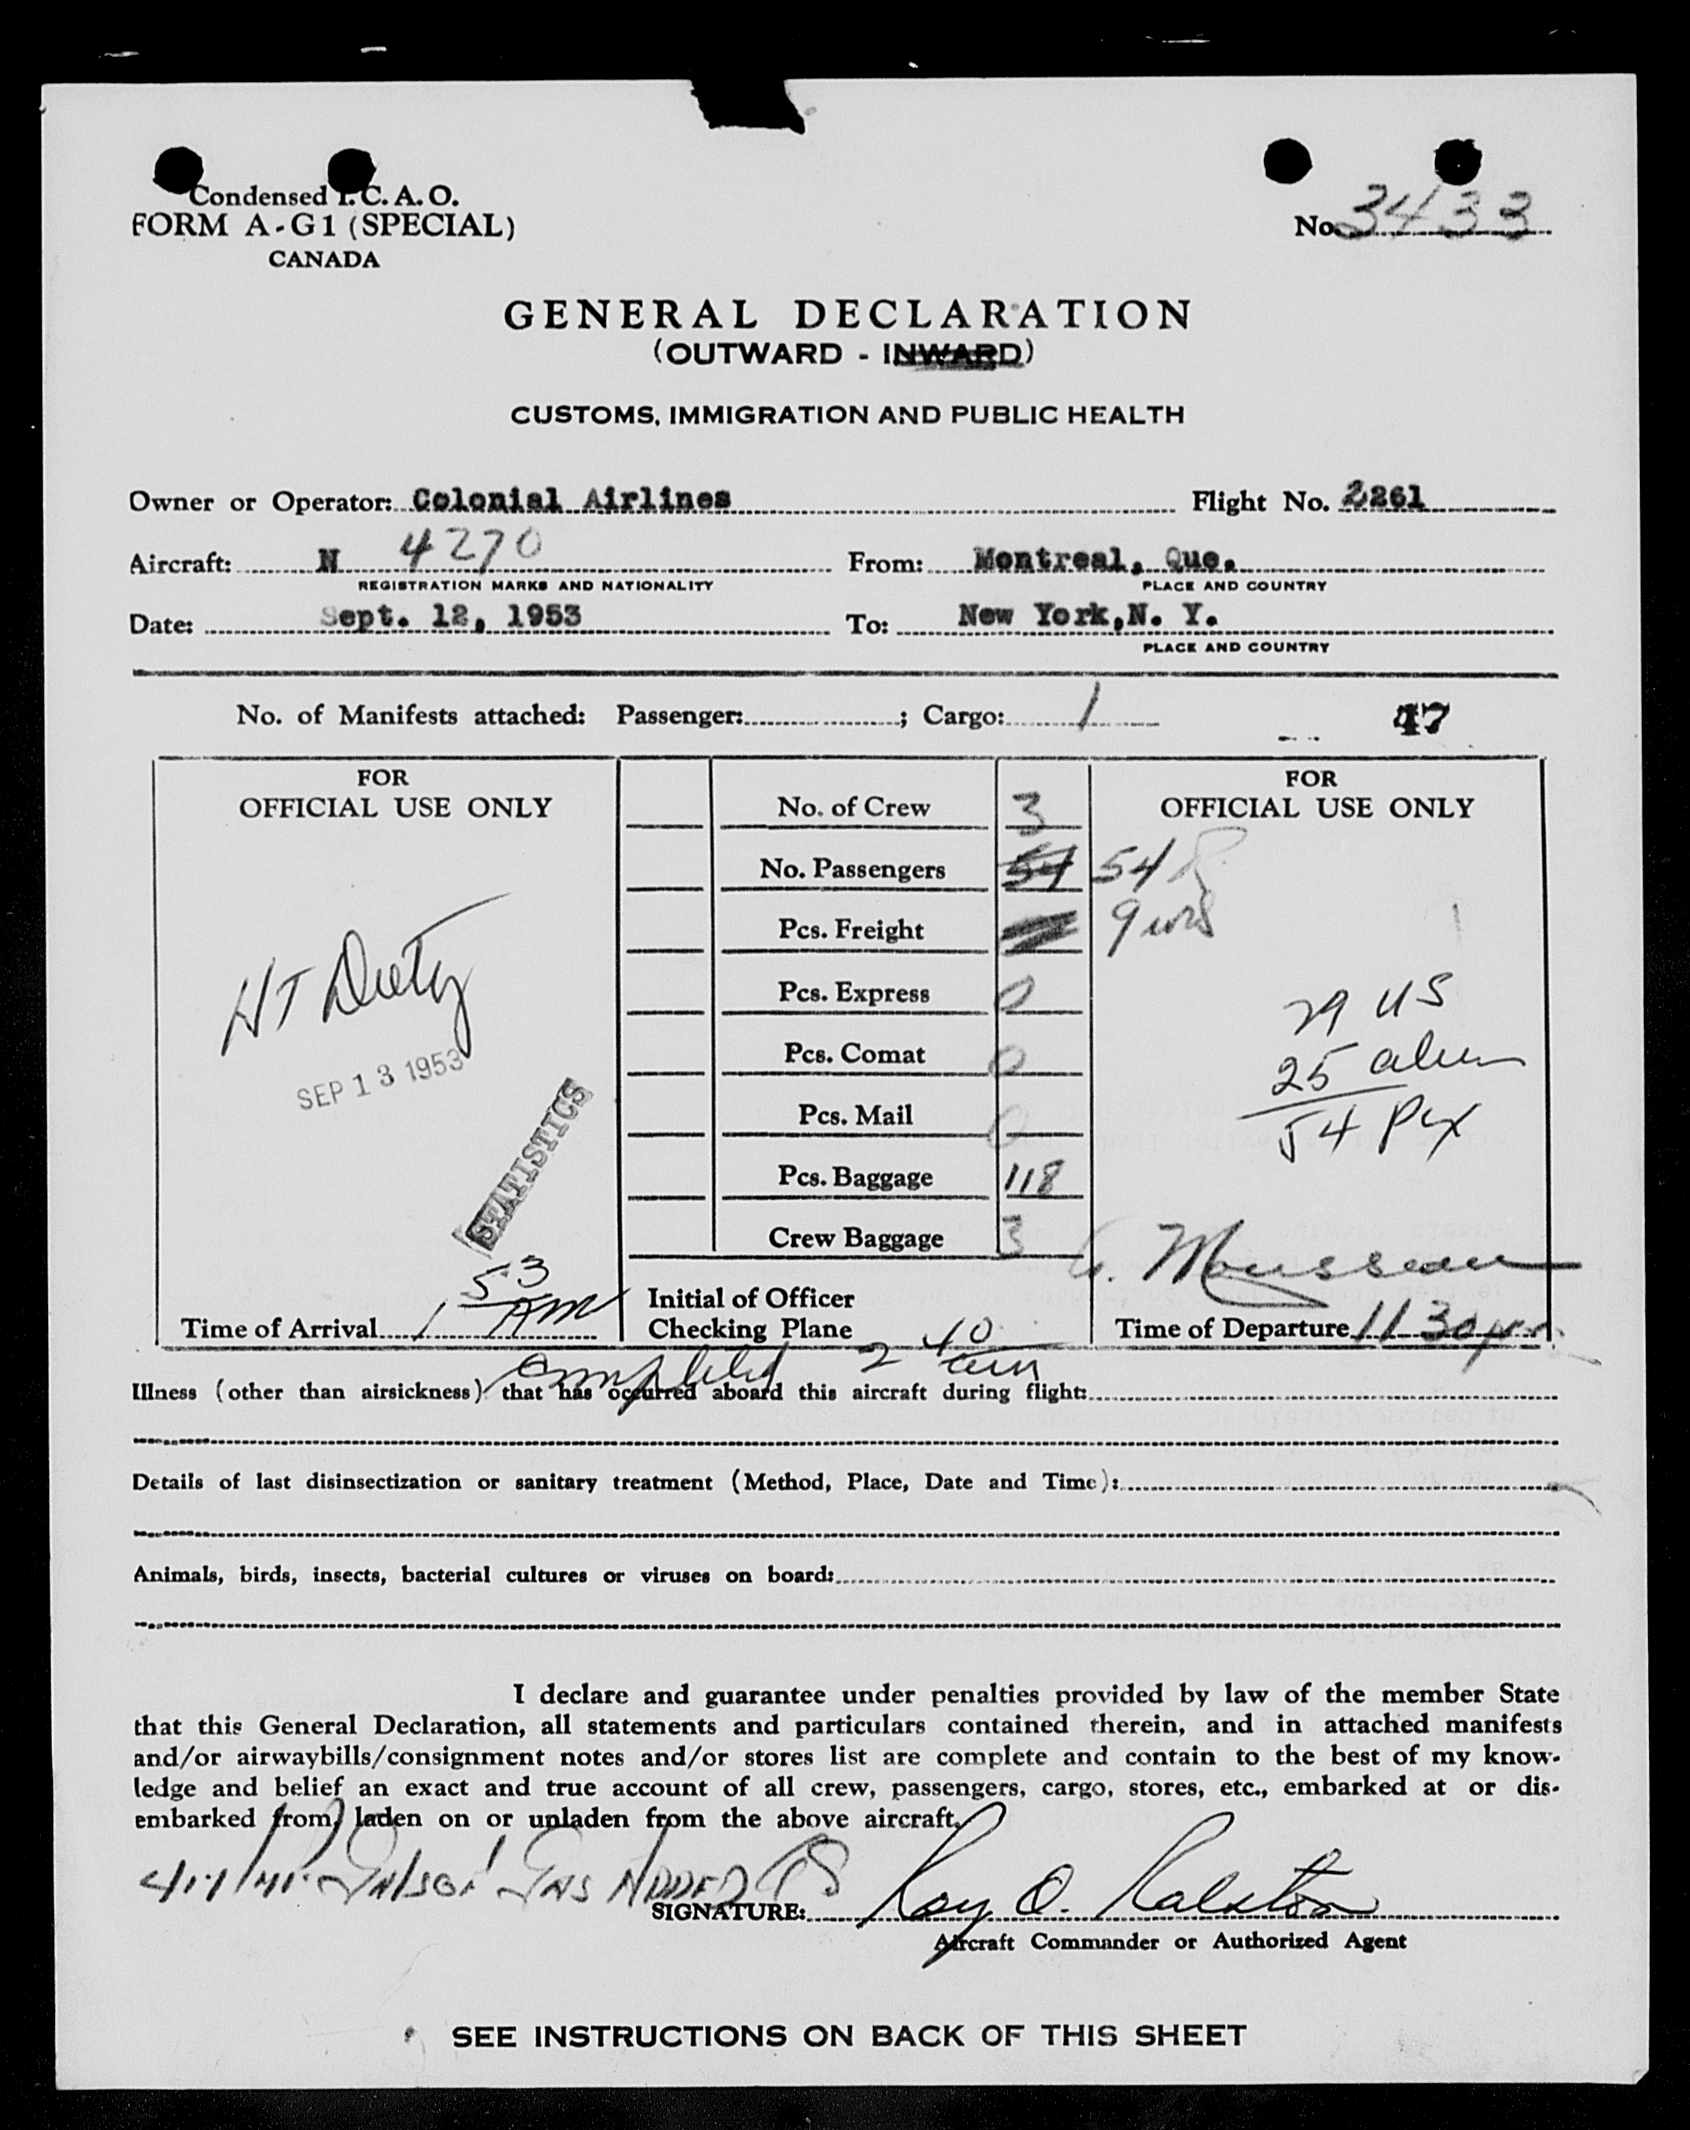 Condensed I. C. A. O.
FORM A-G1 (SPECIAL)
CANADA
No. 3433
GENERAL DECLARATION
(OUTWARD - INWARD)
CUSTOMS, IMMIGRATION AND PUBLIC HEALTH
Owner or Operator: Colonial Airlines Flight No. 2261
Aircraft: N 4270 From: Montreal, Que.
REGISTRATION MARKS AND NATIONALITY PLACE AND COUNTRY
Date: Sept. 12, 1953 To: New York, N. Y.
PLACE AND COUNTRY
No. of Manifests attached: Passenger: ; Cargo: 1 47
FOR
OFFICIAL USE ONLY
HT Duty
SEP 13 1953
STATISTICS
Time of Arrival 1 53 AM
No. of Crew 3
No. Passengers 54
Pcs. Freight
Pcs. Express 0
Pcs. Comat 0
Pcs. Mail 0
Pcs. Baggage 118
Crew Baggage 3
Initial of Officer
Checking Plane
FOR
OFFICIAL USE ONLY
54
9
29 US
25 alien
54 Pex
Mousseau
Time of Departure 11 30 pm
completed 2 40 am
Illness (other than airsickness) that has occurred aboard this aircraft during flight:
Details of last disinsectization or sanitary treatment (Method, Place, Date and Time):
Animals, birds, insects, bacterial cultures or viruses on board:
I declare and guarantee under penalties provided by law of the member State
that this General Declaration, all statements and particulars contained therein, and in attached manifests
and/or airwaybills/consignment notes and/or stores list are complete and contain to the best of my know-
ledge and belief an exact and true account of all crew, passengers, cargo, stores, etc., embarked at or dis-
embarked from, laden on or unladen from the above aircraft.
Gas Added
SIGNATURE: Roy O. Ralston
Aircraft Commander or Authorized Agent
SEE INSTRUCTIONS ON BACK OF THIS SHEET